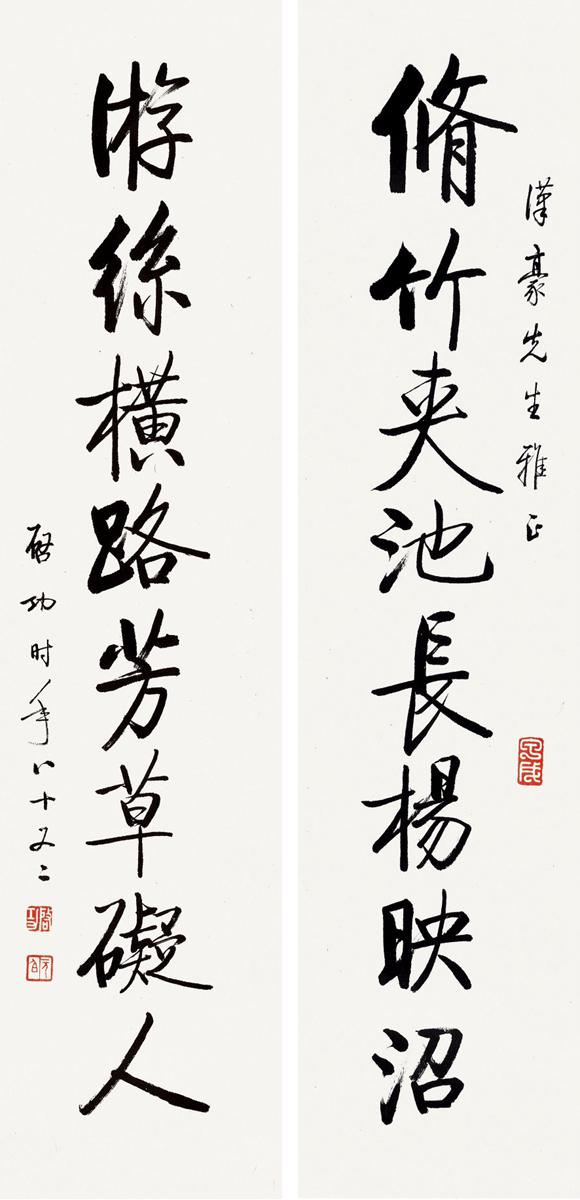 漢豪先生雅正
脩竹夾池長楊映沼
游絲橫路芳草礙人
啓功时年八十又二